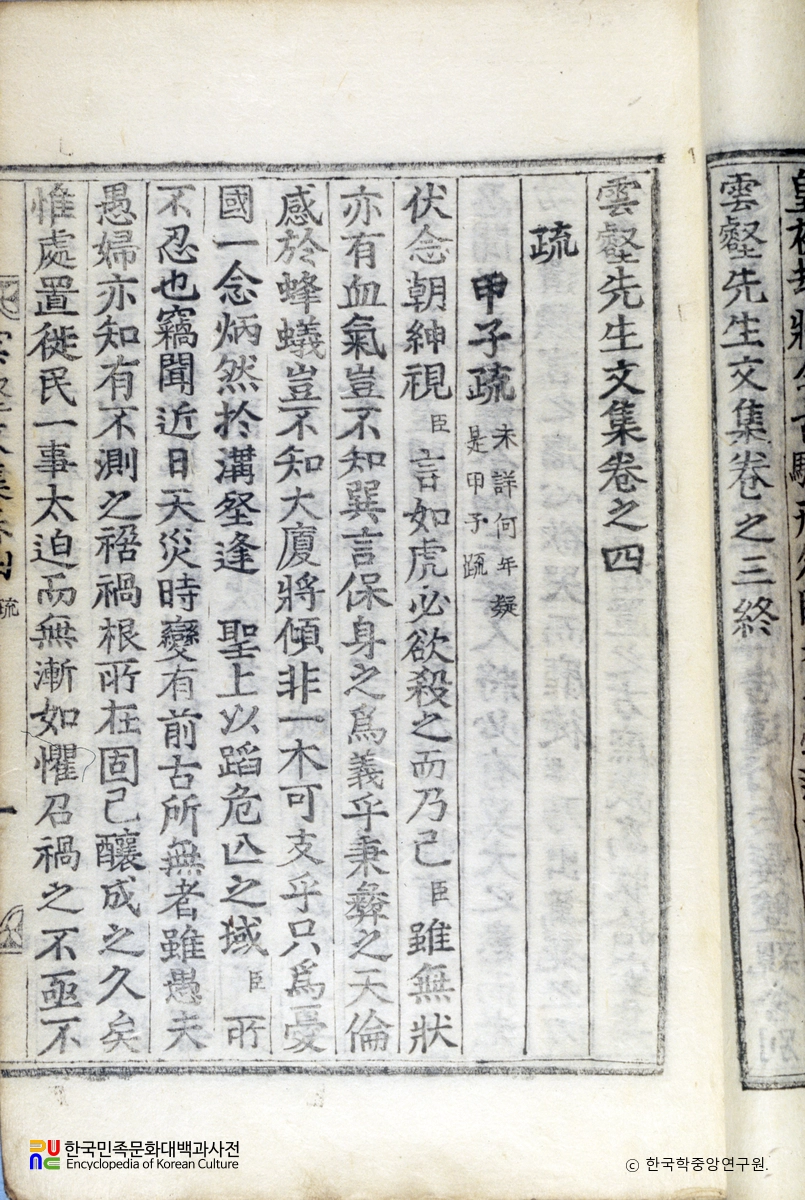 雲壑先生文集卷之三終
雲壑先生文集卷之四
疏
甲子疏 未詳何年疑是甲子疏
伏念朝紳視臣言如虎必欲殺之而乃己臣雖無狀
亦有血氣豈不知巽言保身之爲義乎秉彝之天倫
感於蜂蟻豈不知大廈將傾非一木可支乎只爲憂
國一念炳然於溝壑逢 聖上以蹈危亾之域臣所
不忍也竊聞近日天災時變有前古所無者雖愚夫
愚婦亦知有不測之禍禍根所在固己釀成之久矣
惟處置徙民一事太迫而無漸如懼召禍之不亟不
疏
一
한국민족문화대백과사전
Encyclopedia of Korean Culture
ⓒ 한국학중앙연구원.